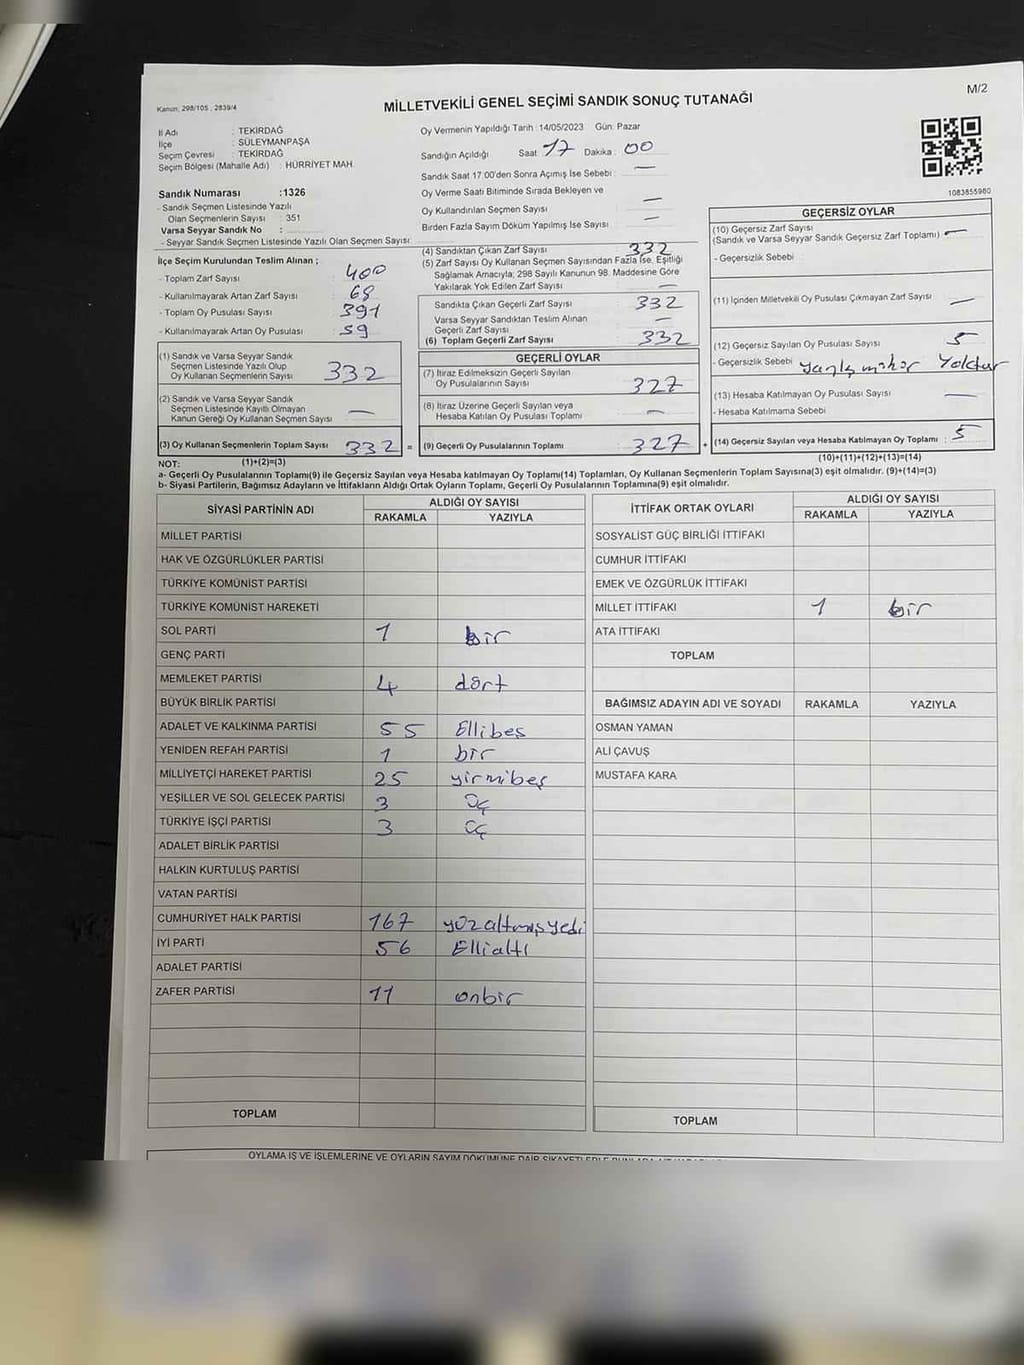 Kanun: 298/105 , 2839/4
MİLLETVEKİLİ GENEL SEÇİMİ SANDIK SONUÇ TUTANAĞI
M/2
İl Adı : TEKİRDAĞ
İlçe : SÜLEYMANPAŞA
Seçim Çevresi : TEKİRDAĞ
Seçim Bölgesi (Mahalle Adı) : HÜRRİYET MAH.
Sandık Numarası :1326
- Sandık Seçmen Listesinde Yazılı
Olan Seçmenlerin Sayısı : 351
Varsa Seyyar Sandık No :
- Seyyar Sandık Seçmen Listesinde Yazılı Olan Seçmen Sayısı:
Oy Vermenin Yapıldığı Tarih :14/05/2023 Gün: Pazar
Sandığın Açıldığı Saat 17 Dakika : 00
Sandık Saat 17:00'den Sonra Açımış İse Sebebi : —
Oy Verme Saati Bitiminde Sırada Bekleyen ve
Oy Kullandırılan Seçmen Sayısı —
Birden Fazla Sayım Döküm Yapılmış İse Sayısı : —
1083855980
İlçe Seçim Kurulundan Teslim Alınan ;
- Toplam Zarf Sayısı : 400
- Kullanılmayarak Artan Zarf Sayısı : 68
- Toplam Oy Pusulası Sayısı : 391
- Kullanılmayarak Artan Oy Pusulası : 59
(1) Sandık ve Varsa Seyyar Sandık
Seçmen Listesinde Yazılı Olup
Oy Kullanan Seçmenlerin Sayısı 332
(2) Sandık ve Varsa Seyyar Sandık
Seçmen Listesinde Kayıtlı Olmayan
Kanun Gereği Oy Kullanan Seçmen Sayısı —
(3) Oy Kullanan Seçmenlerin Toplam Sayısı 332 =
(4) Sandıktan Çıkan Zarf Sayısı 332
(5) Zarf Sayısı Oy Kullanan Seçmen Sayısından Fazla İse, Eşitliği
Sağlamak Amacıyla; 298 Sayılı Kanunun 98. Maddesine Göre
Yakılarak Yok Edilen Zarf Sayısı : —
Sandıkta Çıkan Geçerli Zarf Sayısı : 332
Varsa Seyyar Sandıktan Teslim Alınan
Geçerli Zarf Sayısı : —
(6) Toplam Geçerli Zarf Sayısı : 332
GEÇERLİ OYLAR
(7) İtiraz Edilmeksizin Geçerli Sayılan
Oy Pusulalarının Sayısı : 327
(8) İtiraz Üzerine Geçerli Sayılan veya
Hesaba Katılan Oy Pusulası Toplamı : —
(9) Geçerli Oy Pusulalarının Toplamı : 327 +
GEÇERSİZ OYLAR
(10) Geçersiz Zarf Sayısı
(Sandık ve Varsa Seyyar Sandık Geçersiz Zarf Toplamı) : —
- Geçersizlik Sebebi :
(11) İçinden Milletvekili Oy Pusulası Çıkmayan Zarf Sayısı : —
(12) Geçersiz Sayılan Oy Pusulası Sayısı : 5
- Geçersizlik Sebebi : yanlış mühür Yoktur
(13) Hesaba Katılmayan Oy Pusulası Sayısı : —
- Hesaba Katılmama Sebebi
(14) Geçersiz Sayılan veya Hesaba Katılmayan Oy Toplamı : 5
NOT: (1)+(2)=(3)
(10)+(11)+(12)+(13)=(14)
a- Geçerli Oy Pusulalarının Toplamı(9) ile Geçersiz Sayılan veya Hesaba katılmayan Oy Toplamı(14) Toplamları, Oy Kullanan Seçmenlerin Toplam Sayısına(3) eşit olmalıdır. (9)+(14)=(3)
b- Siyasi Partilerin, Bağımsız Adayların ve İttifakların Aldığı Ortak Oyların Toplamı, Geçerli Oy Pusulalarının Toplamına(9) eşit olmalıdır.
SİYASİ PARTİNİN ADI ALDIĞI OY SAYISI
RAKAMLA YAZIYLA
MİLLET PARTİSİ
HAK VE ÖZGÜRLÜKLER PARTİSİ
TÜRKİYE KOMÜNİST PARTİSİ
TÜRKİYE KOMÜNİST HAREKETİ
SOL PARTİ 1 bir
GENÇ PARTİ
MEMLEKET PARTİSİ 4 dört
BÜYÜK BİRLİK PARTİSİ
ADALET VE KALKINMA PARTİSİ 55 Ellibeş
YENİDEN REFAH PARTİSİ 1 bir
MİLLİYETÇİ HAREKET PARTİSİ 25 yirmibeş
YEŞİLLER VE SOL GELECEK PARTİSİ 3 üç
TÜRKİYE İŞÇİ PARTİSİ 3 üç
ADALET BİRLİK PARTİSİ
HALKIN KURTULUŞ PARTİSİ
VATAN PARTİSİ
CUMHURİYET HALK PARTİSİ 167 yüzaltmışyedi
İYİ PARTİ 56 Ellialtı
ADALET PARTİSİ
ZAFER PARTİSİ 11 onbir
TOPLAM
İTTİFAK ORTAK OYLARI ALDIĞI OY SAYISI
RAKAMLA YAZIYLA
SOSYALİST GÜÇ BİRLİĞİ İTTİFAKI
CUMHUR İTTİFAKI
EMEK VE ÖZGÜRLÜK İTTİFAKI
MİLLET İTTİFAKI 1 bir
ATA İTTİFAKI
TOPLAM
BAĞIMSIZ ADAYIN ADI VE SOYADI RAKAMLA YAZIYLA
OSMAN YAMAN
ALİ ÇAVUŞ
MUSTAFA KARA
TOPLAM
OYLAMA İŞ VE İŞLEMLERİNE VE OYLARIN SAYIM DÖKÜMÜNE DAİR